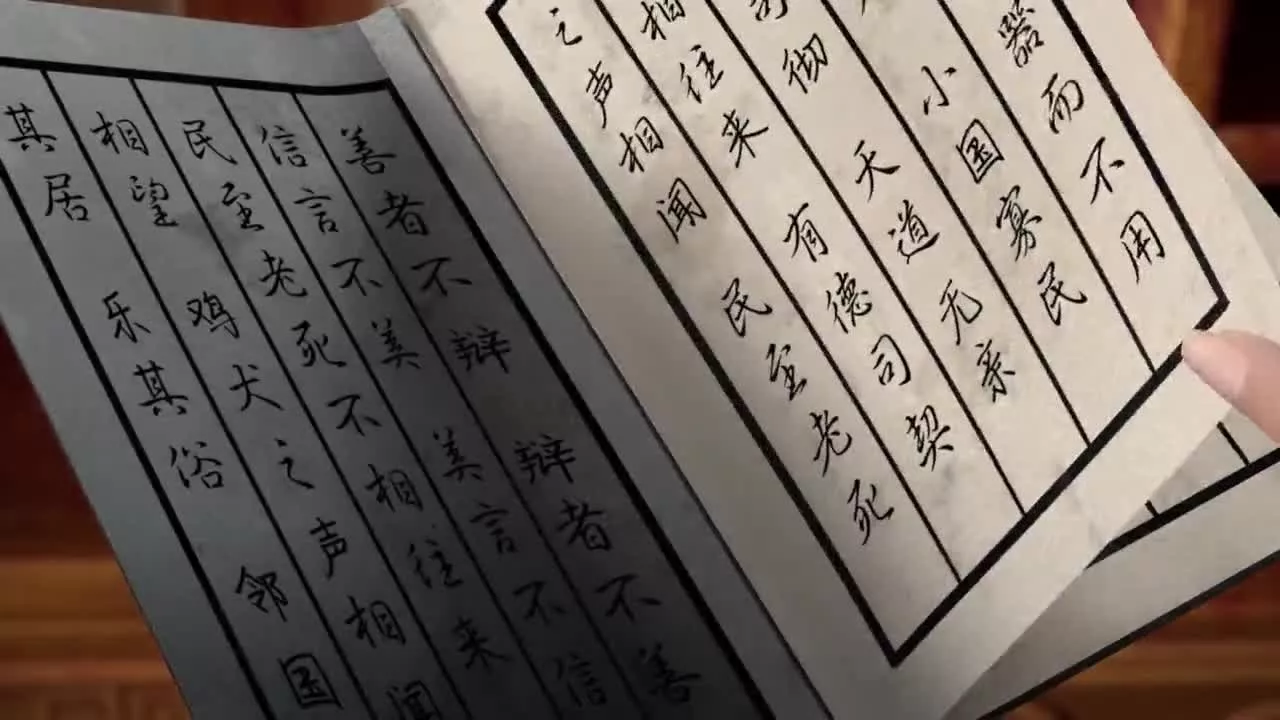 器而不用
小国寡民
司彻 天道无亲
相往来 有德司契
之声相闻 民至老死
善者不辩 辩者不善
信言不美 美言不信
民至老死不相往来
相望 鸡犬之声相闻
其居 乐其俗 邻国